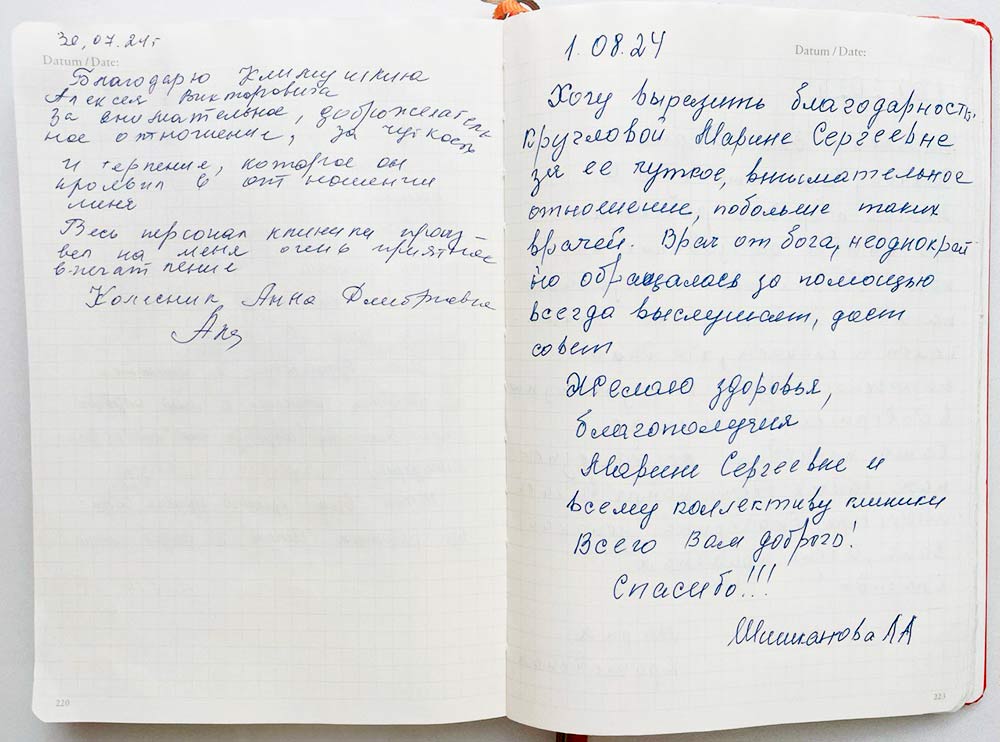 30.07.24г
Datum / Date:
Благодарю Климушкина
Алексея Викторовича
за внимательное, доброжелатель
ное отношение, за чуткость
и терпение, которое он
проявил в отношении
меня
Весь персонал клиники произ-
вел на меня очень приятное
впечатление
Колесник Анна Дмитриевна
220
1.08.24
Datum / Date:
Хочу выразить благодарность
Кругловой Марине Сергеевне
за ее чуткое, внимательное
отношение, побольше таких
врачей. Врач от бога, неоднократ
но обращалась за помощью
всегда выслушает, даст
совет
Желаю здоровья,
благополучия
Марине Сергеевне и
всему коллективу клиники
Всего Вам доброго!
Спасибо!!!
Шишканова ЛА
223